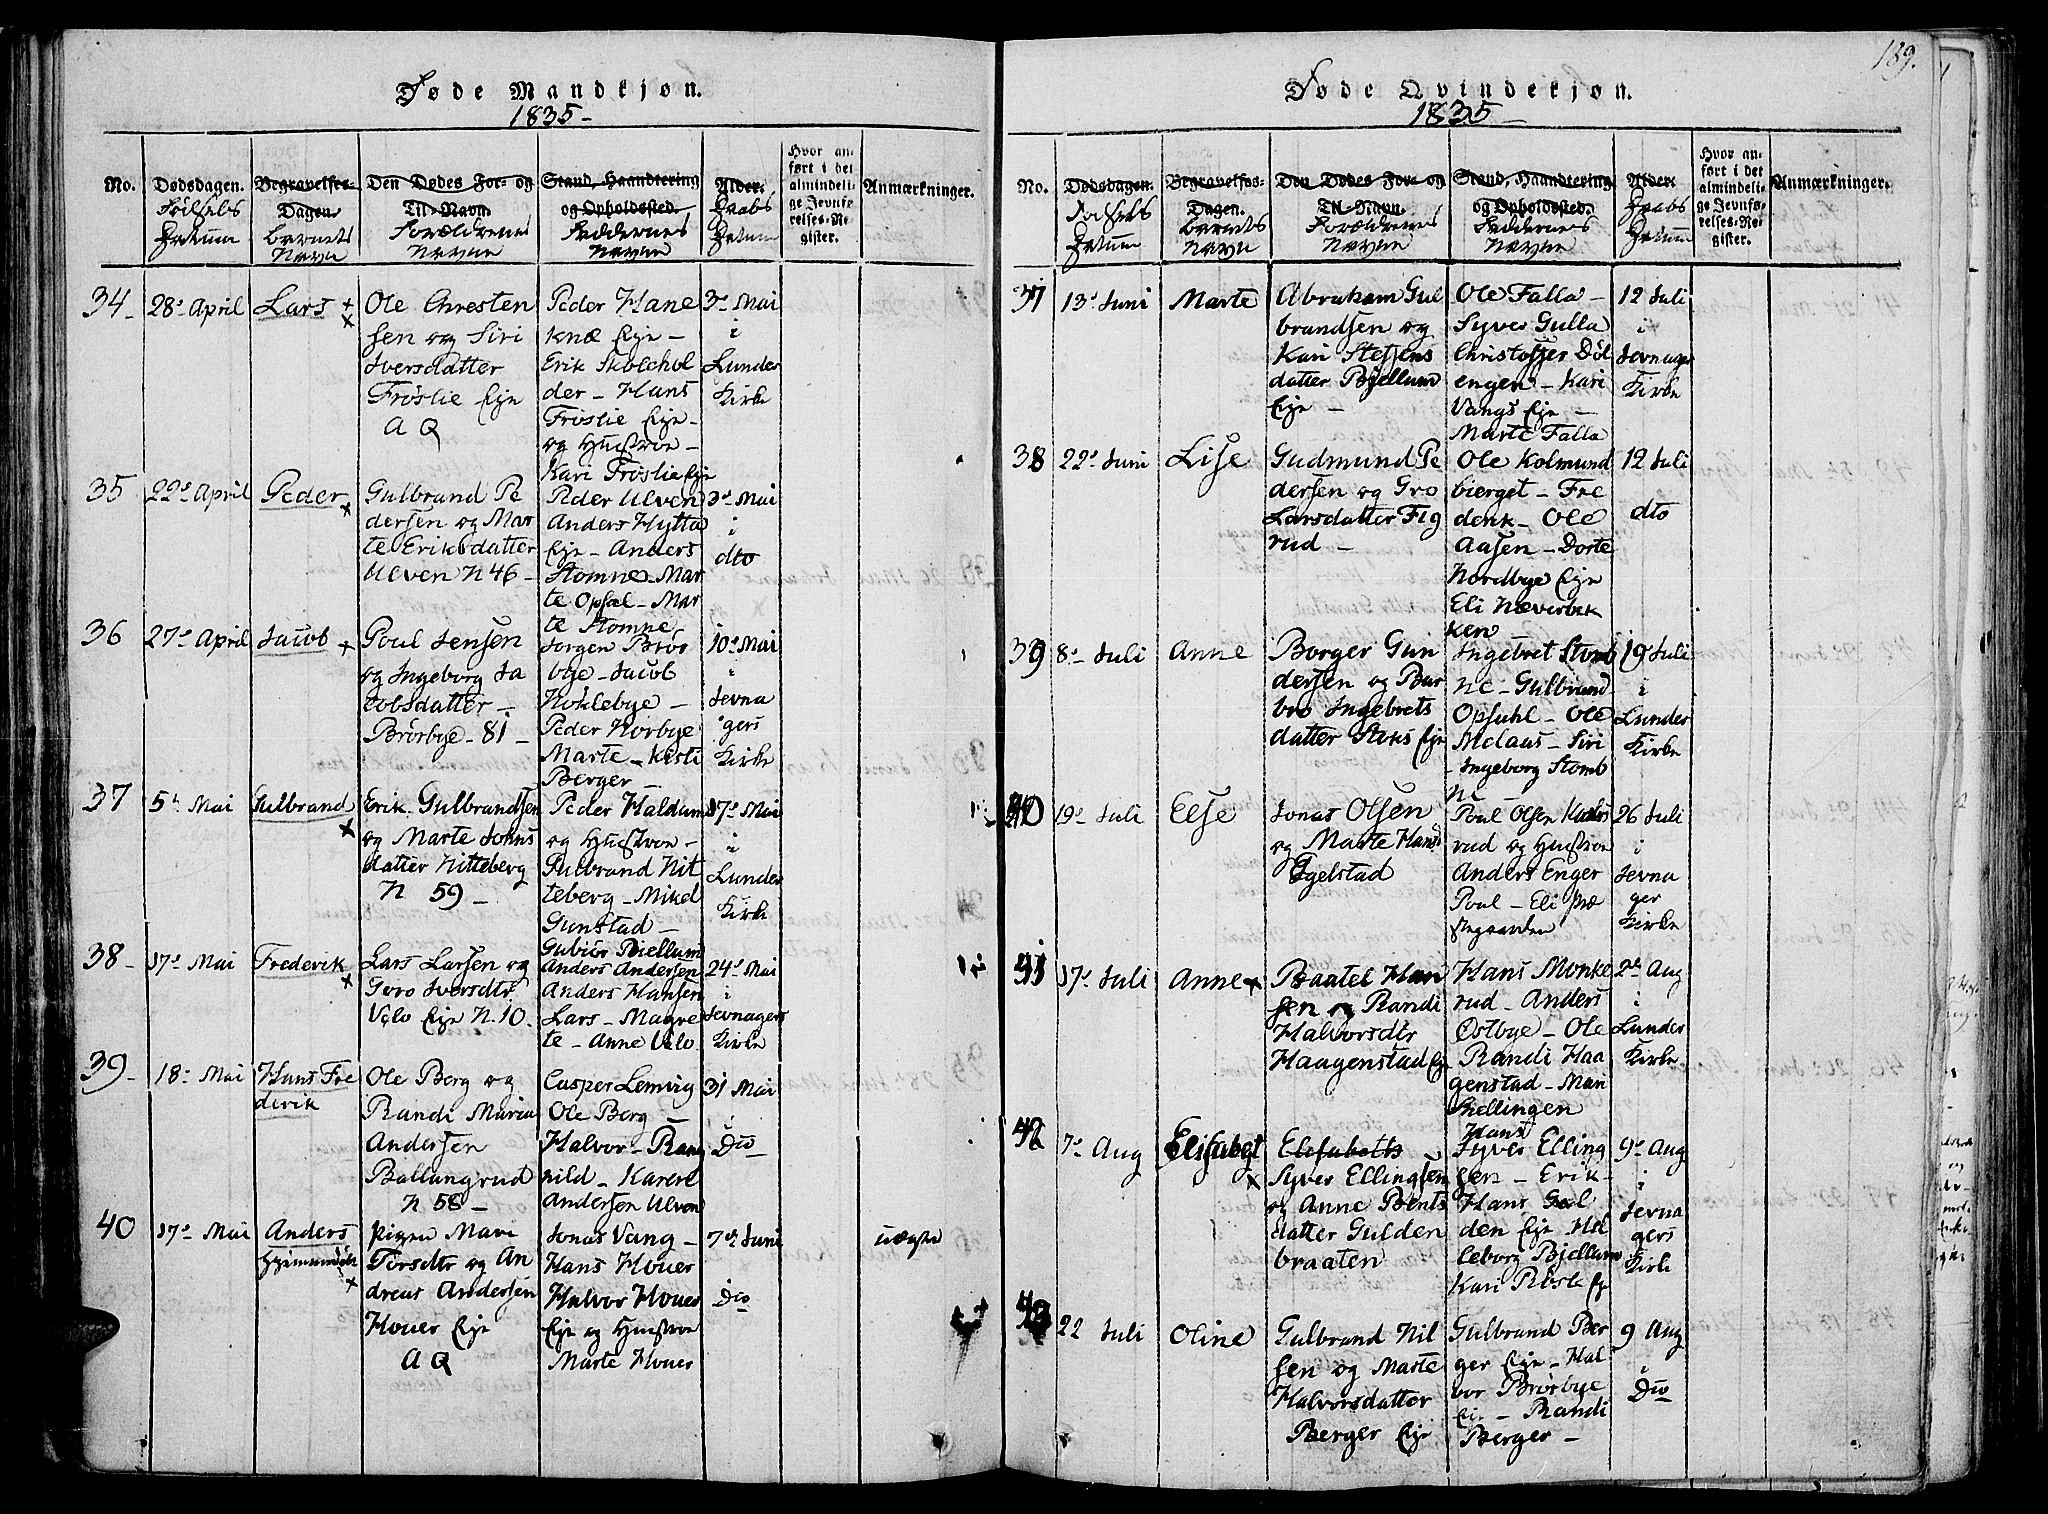 189.
Føde Mandkjøn.
1835 –
No.
Dødsdagen.
Fødsels
Datum
Begravelses-
Dagen.
Barnets
Navn
Den Dødes For- og
Til-Navn.
Forældrenes
Navne
Stand, Haandtering
og Opholdssted.
Faddernes
Navne
Alder.
Daabs
Datum
Hvor an-
ført i det
almindeli-
ge Jevnfø-
relses-Re-
gister.
Anmærkninger.
34 –
28de April
Lars
Ole Chresten
sen og Siri
Iversdatter
Frøslie Eje
A Q
Peder Hane
knæ Eje –
Erik Skolehol
der – Hans
Frøslie Eje –
og Hustroe –
Kari Frøslie Eje
3de Mai
i
Lunder
Kirke
35
22de April
Peder
Gulbrand Pe
dersen og Mar
te Eriksdatter
Ulven N 46 –
Peder Ulven
Anders Hytta
Eje – Anders
Stomne – Mar
te Opsal – Mar
te Stomne
3de Mai
i
dto
36
27de April
Jacob
Poul Jensen
og Ingeborg Ja
cobsdatter –
Brørbye – 81 –
Jørgen Brør
bye – Jacob
Hoklebye –
Peder Norbye
Marte – Kisti
Berger –
10de Mai
i
Jevna
gers
Kirke
37
5te Mai
Gulbrand
Erik Gulbrandsen
og Marte Johns
datter Nitteberg
N 59 –
Peder Haldum
og Hustroe –
Gulbrand Nit
teberg – Mikel
Gunstad –
Gubiør Bjellum
17de Mai
i
Lunder
Kirke
38 –
17de Mai
Frederik
Lars Larsen og
Goro Iversdtr
Velo Eje N. 10.
Anders Andersen
Anders Hansen
Lars – Magre
te – Anne Velo
24de Mai
i
Jevnagers
Kirke
39 –
18de Mai
Hans Fre
derik
Ole Berg og
Randi Maria
Andersen
Ballangrud
N 58 –
Casper Lemvig
Ole Berg –
Halvor – Rang
nild – Karen
Andersen Ulven
31 Mai
i
Do
40
17de Mai
Anders
Pigen Mari
Torsdtr og An
dreas Andersen
Houer Eje
A Q
Jonas Vang –
Hans Houer
Halvor Houer
Eje og Hustroe
Marte Houer
7de Juni
Do
uægte
Føde Qvindekjøn.
1835 –
No.
Dødsdagen.
Fødsels
Datum
Begravelses-
Dagen.
Barnets
Navn
Den Dødes For- og
Til-Navn.
Forældrenes
Navne
Stand, Haandtering
og Opholdssted.
Faddernes
Navne
Alder.
Daabs
Datum
Hvor an-
ført i det
almindeli-
ge Jevnfø-
relses-Re-
gister.
Anmærkninger.
37
13de Juni
Marte
Abraham Gul
brandsen og
Kari Steffens
datter Bjellum
Eje –
Ole Falla –
Syver Gulla
Christoffer Døl
engen – Kari
Vangs Eje –
Marte Falla
12 Juli
i
Jevnager
Kirke
38
22de Juni
Lise
Gudmund Pe
dersen og Gro
Larsdatter Flg
rud –
Ole Kolmund
bierget – Fre
derik – Ole
Aasen – Dorte
Nordbye Eje
Eli Næverbek
ken
12 Juli
dto
39
8de Juli
Anne
Borger Gun
dersen og Bar
bro Ingebrets
datter Stoks Eje
Ingebret Stomb
ne – Gulbrand
Opsahl – Ole
Melaas – Siri
Ingeborg Stomb
ne
19de Juli
i
Lunder
Kirke
40
19de Juli
Else
Jonas Olsen
og Marte Hansd
Egelstad
Poul Olsen
rud og Hustroe
Anders Enger
Poul – Eli Præ
stegaarden
26 Juli
i
Jevna
ger
Kirke
41
17de Juli
Anne
Baatel Han
sen og Randi
Halvorsdtr
Haagenstad Eje
Hans Monke
rud – Anders
Østbye – Ole
Randi Haa
genstad – Mari
Kiellingen
2de Aug
i
Lunder
Kirke
42
7de Aug
Elisabet
Elisabeths
Syver Ellingsen
og Anne Bents
datter Gulden
braaten
Hans
Syver Elling
sen – Erik –
Hans Gul
den Eje – Hel
leborg Bjellum
Kari
9de Aug
i
Jevna
gers
Kirke
43
22 Juli
Oline
Gulbrand Nil
sen og Marte
Halvorsdatter
Berger Eje
Gulbrand Ber
ger Eje – Hal
vor Brørbye
Eje – Randi
Berger –
9 Aug
i
Do